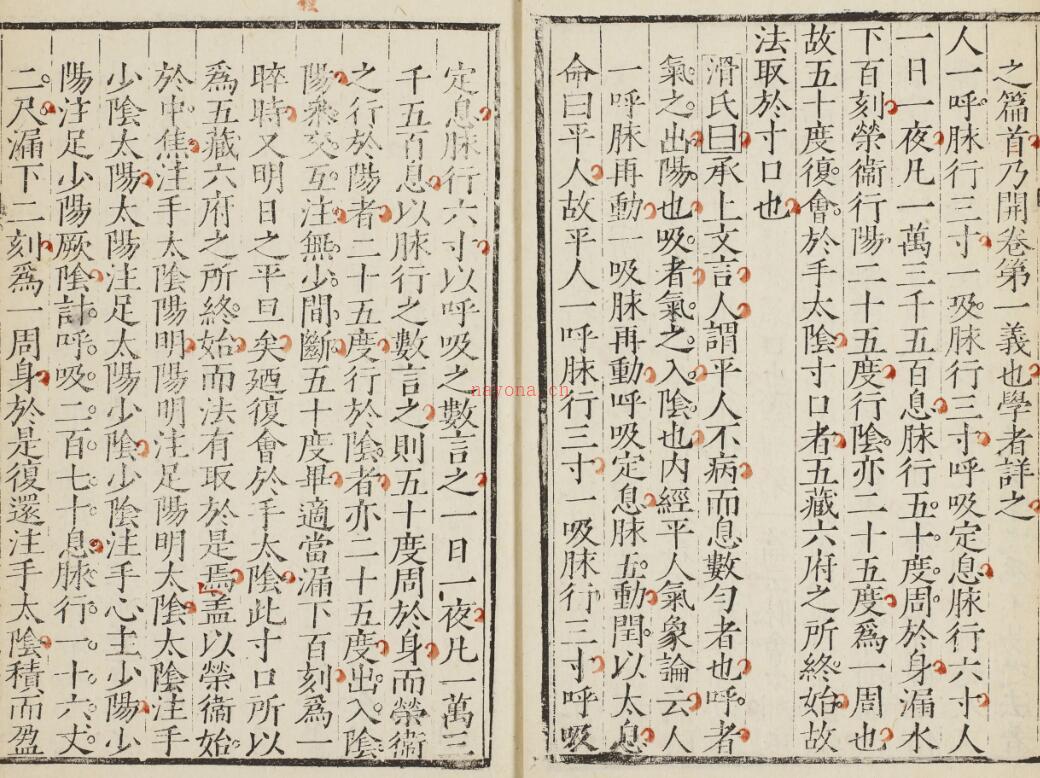 之篇首乃開卷第一義也學者詳之
人一呼脉行三寸一吸脉行三寸呼吸定息脉行六寸人
一日一夜凡一萬三千五百息脉行五十度周於身漏水
下百刻榮衞行陽二十五度行陰亦二十五度爲一周也
故五十度復會於手太陰寸口者五藏六府之所終始故
法取於寸口也
滑氏曰承上文言人謂平人不病而息數勻者也呼者
氣之出陽也吸者氣之入陰也内經平人氣象論云人
一呼脉再動一吸脉再動呼吸定息脉五動閏以太息
命曰平人故平人一呼脉行三寸一吸脉行三寸呼吸
定息脉行六寸以呼吸之數言之一日一夜凡一萬三
千五百息以脉行之數言之則五十度周於身而榮衞
之行於陽者二十五度行於陰者亦二十五度出入陰
陽乘交互注無少間斷五十度畢適當漏下百刻爲一
晬時又明日之平旦矣廼復會於手太陰此寸口所以
爲五藏六府之所終始而法有取於是焉盖以榮衞始
於中焦注手太陰陽明陽明注足陽明太陰太陰注手
少陰太陽太陽注足太陽少陰少陰注手心主少陽少
陽注足少陽厥陰計呼吸二百七十息脉行一十六丈
二尺漏下二刻爲一周身於是復還注手太陰積而盈
nayona.cn